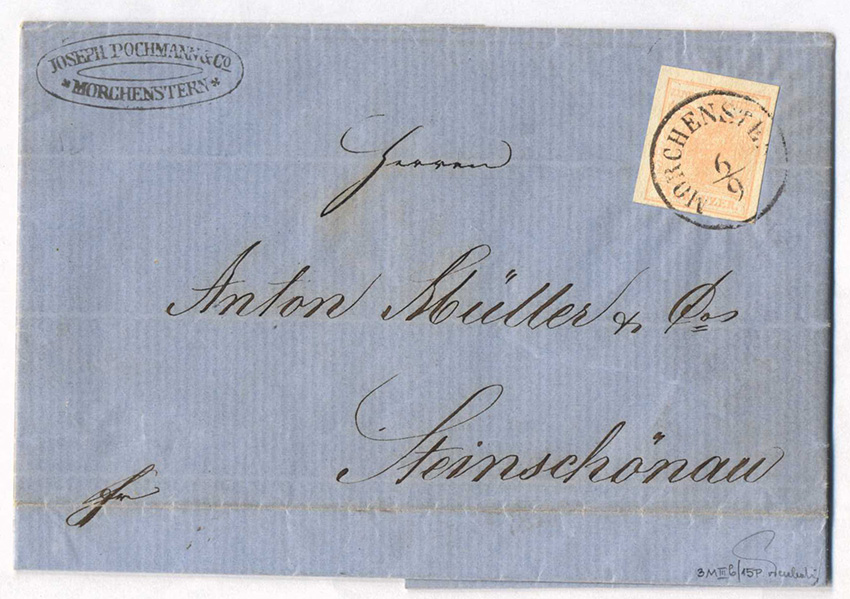 JOSEPH POCHMANN & Co
* MORCHENSTERN *
MORCHENSTE
6/9
KREUZER
Herren
Anton Müller & Co
Steinschönau
fr
3 M III b/15P